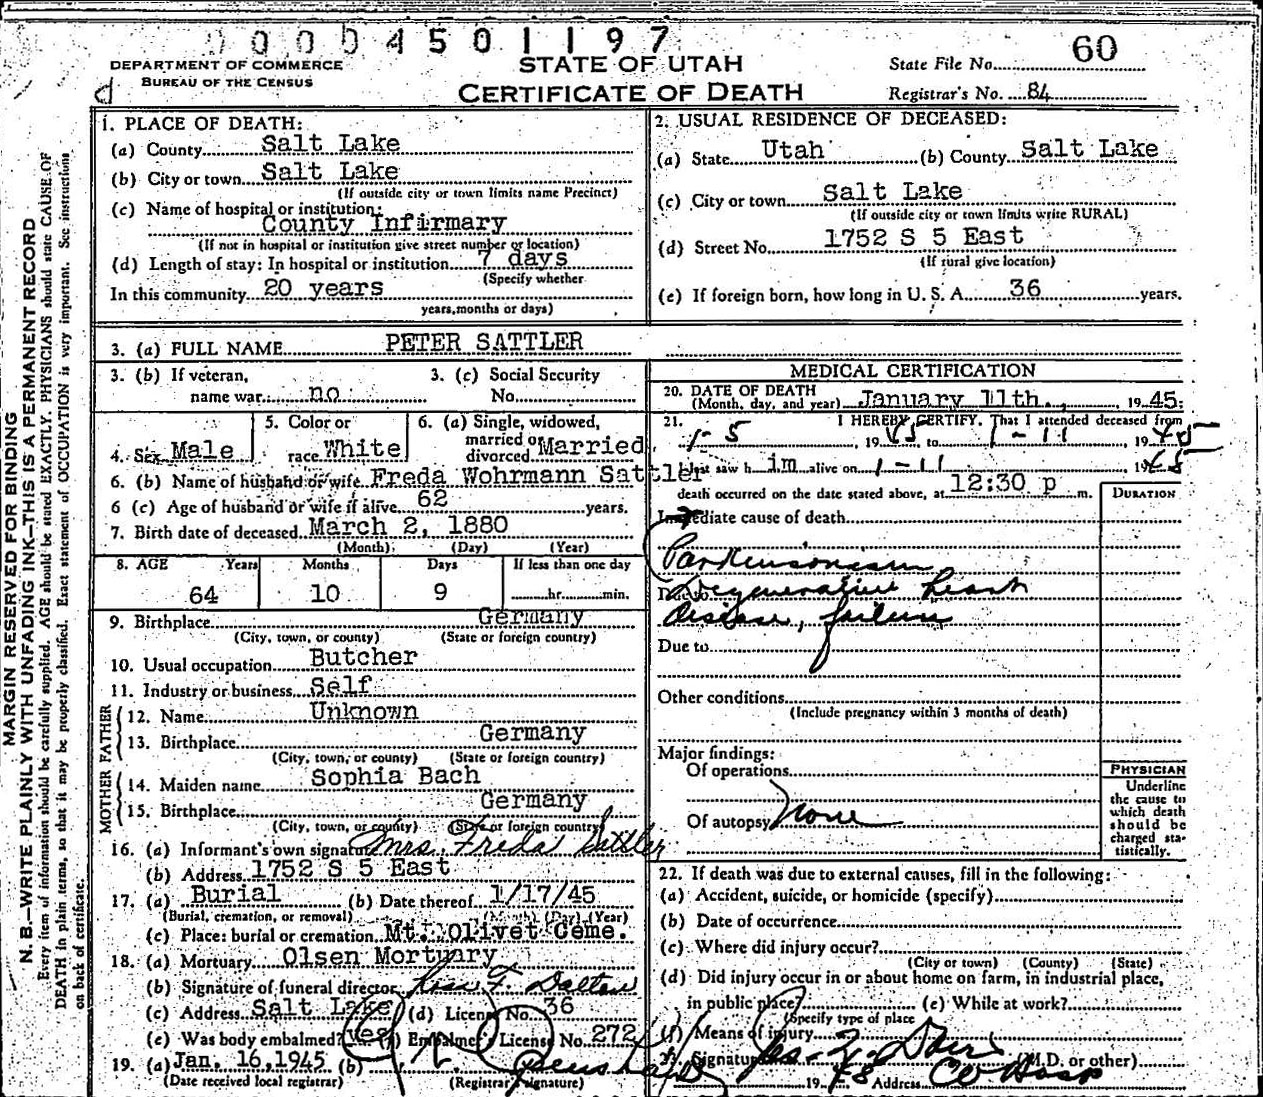 0004501197
DEPARTMENT OF COMMERCE
BUREAU OF THE CENSUS
STATE OF UTAH
CERTIFICATE OF DEATH
State File No. 60
Registrar's No. 84
MARGIN RESERVED FOR BINDING
N. B.—WRITE PLAINLY WITH UNFADING INK—THIS IS A PERMANENT RECORD
Every item of information should be carefully supplied. AGE should be stated EXACTLY. PHYSICIANS should state CAUSE OF
DEATH in plain terms, so that it may be properly classified. Exact statement of OCCUPATION is very important. See instructions
on back of certificate.
1. PLACE OF DEATH:
(a) County Salt Lake
(b) City or town Salt Lake
(If outside city or town limits name Precinct)
(c) Name of hospital or institution:
County Infirmary
(If not in hospital or institution give street number or location)
(d) Length of stay: In hospital or institution 7 days
(Specify whether
In this community 20 years
years, months or days)
2. USUAL RESIDENCE OF DECEASED:
(a) State Utah (b) County Salt Lake
(c) City or town Salt Lake
(If outside city or town limits write RURAL)
(d) Street No. 1752 S 5 East
(If rural give location)
(e) If foreign born, how long in U. S. A. 36 years.
3. (a) FULL NAME PETER SATTLER
3. (b) If veteran,
name war no
3. (c) Social Security
No.
4. Sex Male
5. Color or
race White
6. (a) Single, widowed,
married or
divorced Married
6. (b) Name of husband or wife Freda Wohrmann Sattler
6 (c) Age of husband or wife if alive 62 years.
7. Birth date of deceased March 2, 1880
(Month) (Day) (Year)
8. AGE Years Months Days If less than one day
64 10 9 hr. min.
9. Birthplace Germany
(City, town, or county) (State or foreign country)
10. Usual occupation Butcher
11. Industry or business Self
FATHER
12. Name Unknown
13. Birthplace Germany
(City, town, or county) (State or foreign country)
MOTHER
14. Maiden name Sophia Bach
15. Birthplace Germany
(City, town, or county) (State or foreign country)
16. (a) Informant's own signature Mrs. Freda Sattler
(b) Address 1752 S 5 East
17. (a) Burial (b) Date thereof 1/17/45
(Burial, cremation, or removal) (Month) (Day) (Year)
(c) Place: burial or cremation Mt. Olivet Ceme.
18. (a) Mortuary Olsen Mortuary
(b) Signature of funeral director F. Dalton
(c) Address Salt Lake (d) License No. 36
(e) Was body embalmed? yes (f) Embalmer's License No. 272
19. (a) Jan. 16, 1945 (b)
(Date received local registrar) (Registrar's signature)
MEDICAL CERTIFICATION
20. DATE OF DEATH
(Month, day, and year) January 11th., 1945.
21. I HEREBY CERTIFY, That I attended deceased from
1-5 1945 to 1-11 1945
I last saw him alive on 1-11 1945
death occurred on the date stated above, at 12:30 p m.
DURATION
Immediate cause of death
Parkinsonism
Due to Degenerative heart
disease, failure
Due to
Other conditions
(Include pregnancy within 3 months of death)
Major findings:
Of operations
Of autopsy None
PHYSICIAN
Underline
the cause to
which death
should be
charged sta-
tistically.
22. If death was due to external causes, fill in the following:
(a) Accident, suicide, or homicide (specify)
(b) Date of occurrence
(c) Where did injury occur?
(City or town) (County) (State)
(d) Did injury occur in or about home on farm, in industrial place,
in public place? (e) While at work?
(Specify type of place
(f) Means of injury
23. Signature (M.D. or other)
19 Address Co Hosp